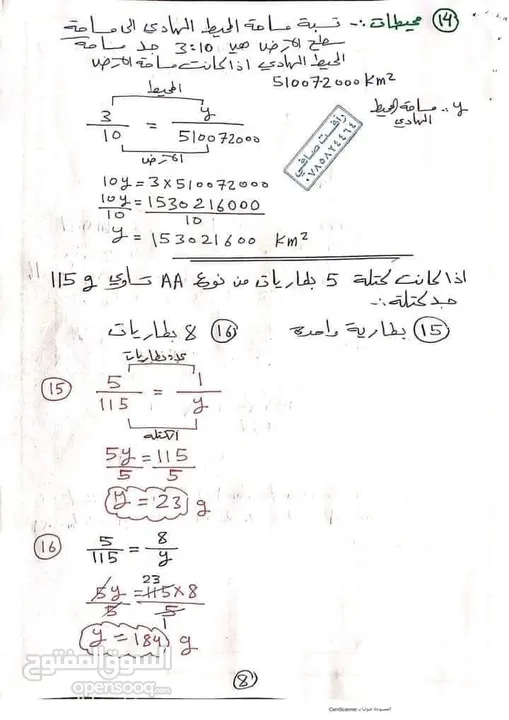 (14) محيطات :- نسبة مساحة المحيط الهادي الى مساحة
سطح الارض هي 3:10 جد مساحة
المحيط الهادي اذا كانت مساحة الارض
510072000 Km²
y :- مساحة المحيط
الهادي
المحيط
3/10 = y/510072000
الارض
رأفت صافي
٠٧٨٥٨٢٤٤٦٤
10y = 3 × 510072000
10y/10 = 1530216000/10
y = 153021600 Km²
اذا كانت كتلة 5 بطاريات من نوع AA تساوي 115 g
جد كتلة :-
(15) بطارية واحدة (16) 8 بطاريات
عدد بطاريات
(15) 5/115 = 1/y
الكتلة
5y/5 = 115/5
y = 23 g
(16) 5/115 = 8/y
23
5y/5 = 115×8/5
1
y = 184 g
السوق المفتوح
opensooq.com
(8)
CamScanner الممسوحة ضوئيا بـ